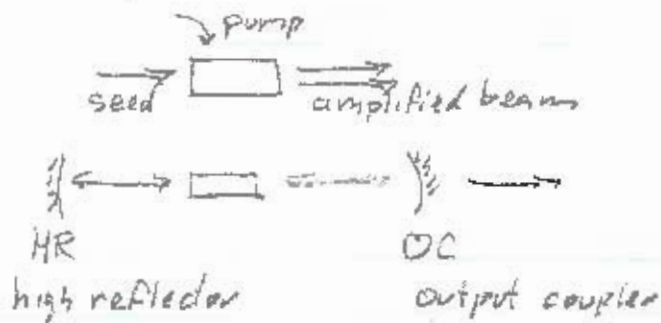 pump
seed amplified beam
HR OC
high reflector output coupler